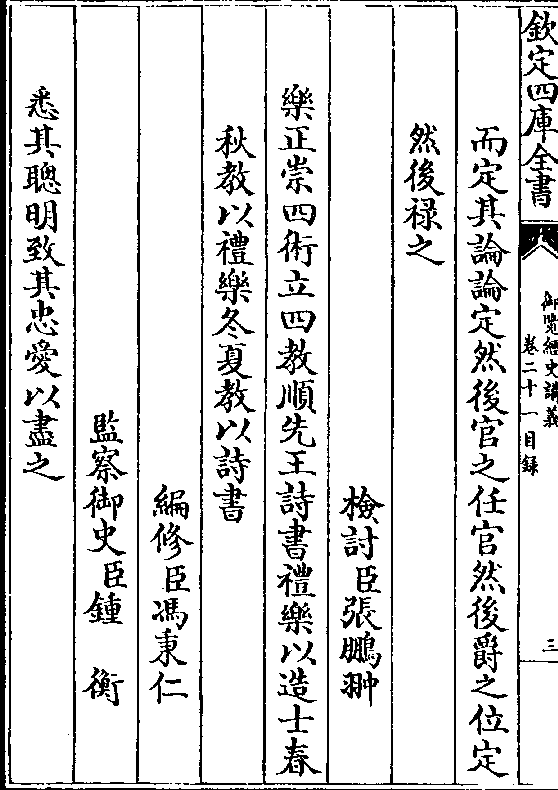 欽定四庫全書
御覽經史講義
卷二十一目録
三
而定其論論定然後官之任官然後爵之位定
然後禄之
檢討臣張鵬翀
樂正崇四術立四教順先王詩書禮樂以造士春
秋教以禮樂冬夏教以詩書
編修臣馮秉仁
監察御史臣鍾衡
悉其聰明致其忠愛以盡之